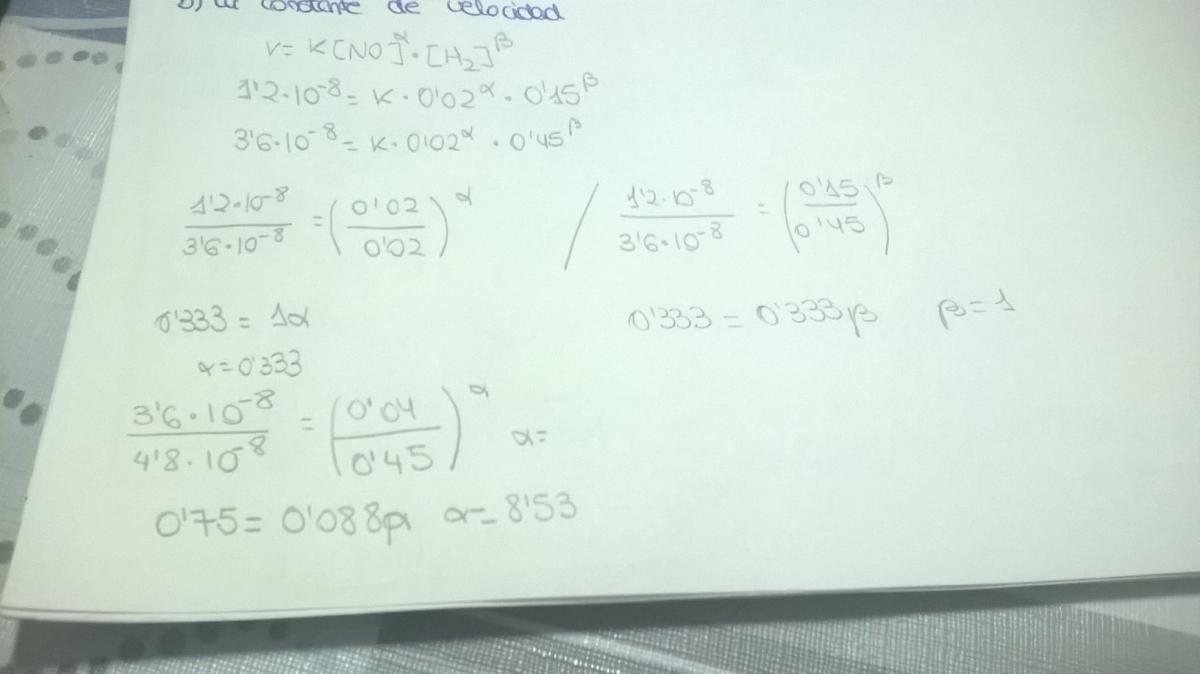 b) la constante de velocidad
V= K[NO]^α · [H₂]^β
1'2·10⁻⁸ = K · 0'02^α · 0'15^β
3'6·10⁻⁸ = K · 0'02^α · 0'45^β
1'2·10⁻⁸ / 3'6·10⁻⁸ = (0'02 / 0'02)^α / 1'2·10⁻⁸ / 3'6·10⁻⁸ = (0'15 / 0'45)^β
0'333 = 1α 0'333 = 0'333β β=1
α=0'333
3'6·10⁻⁸ / 4'8·10⁻⁸ = (0'04 / 0'45)^α α=
0'75 = 0'088α α= 8'53